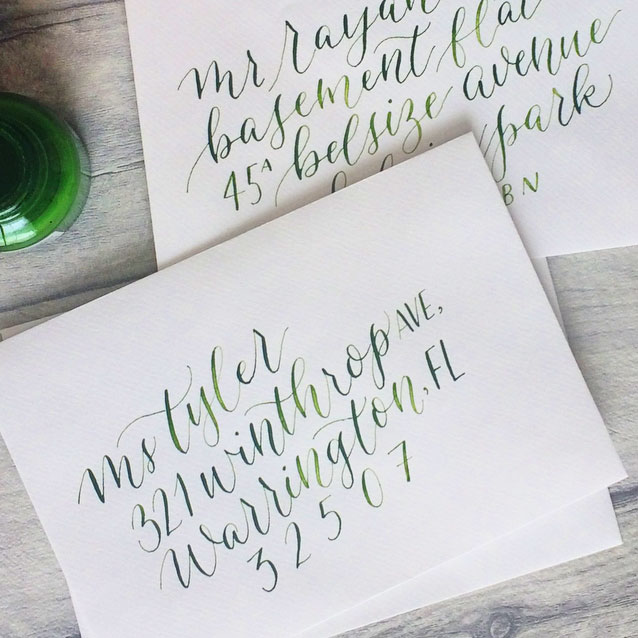 mr rayan
basement flat
45A belsize avenue
park
BN
ms tyler
321 winthrop AVE,
Warrington, FL
32507